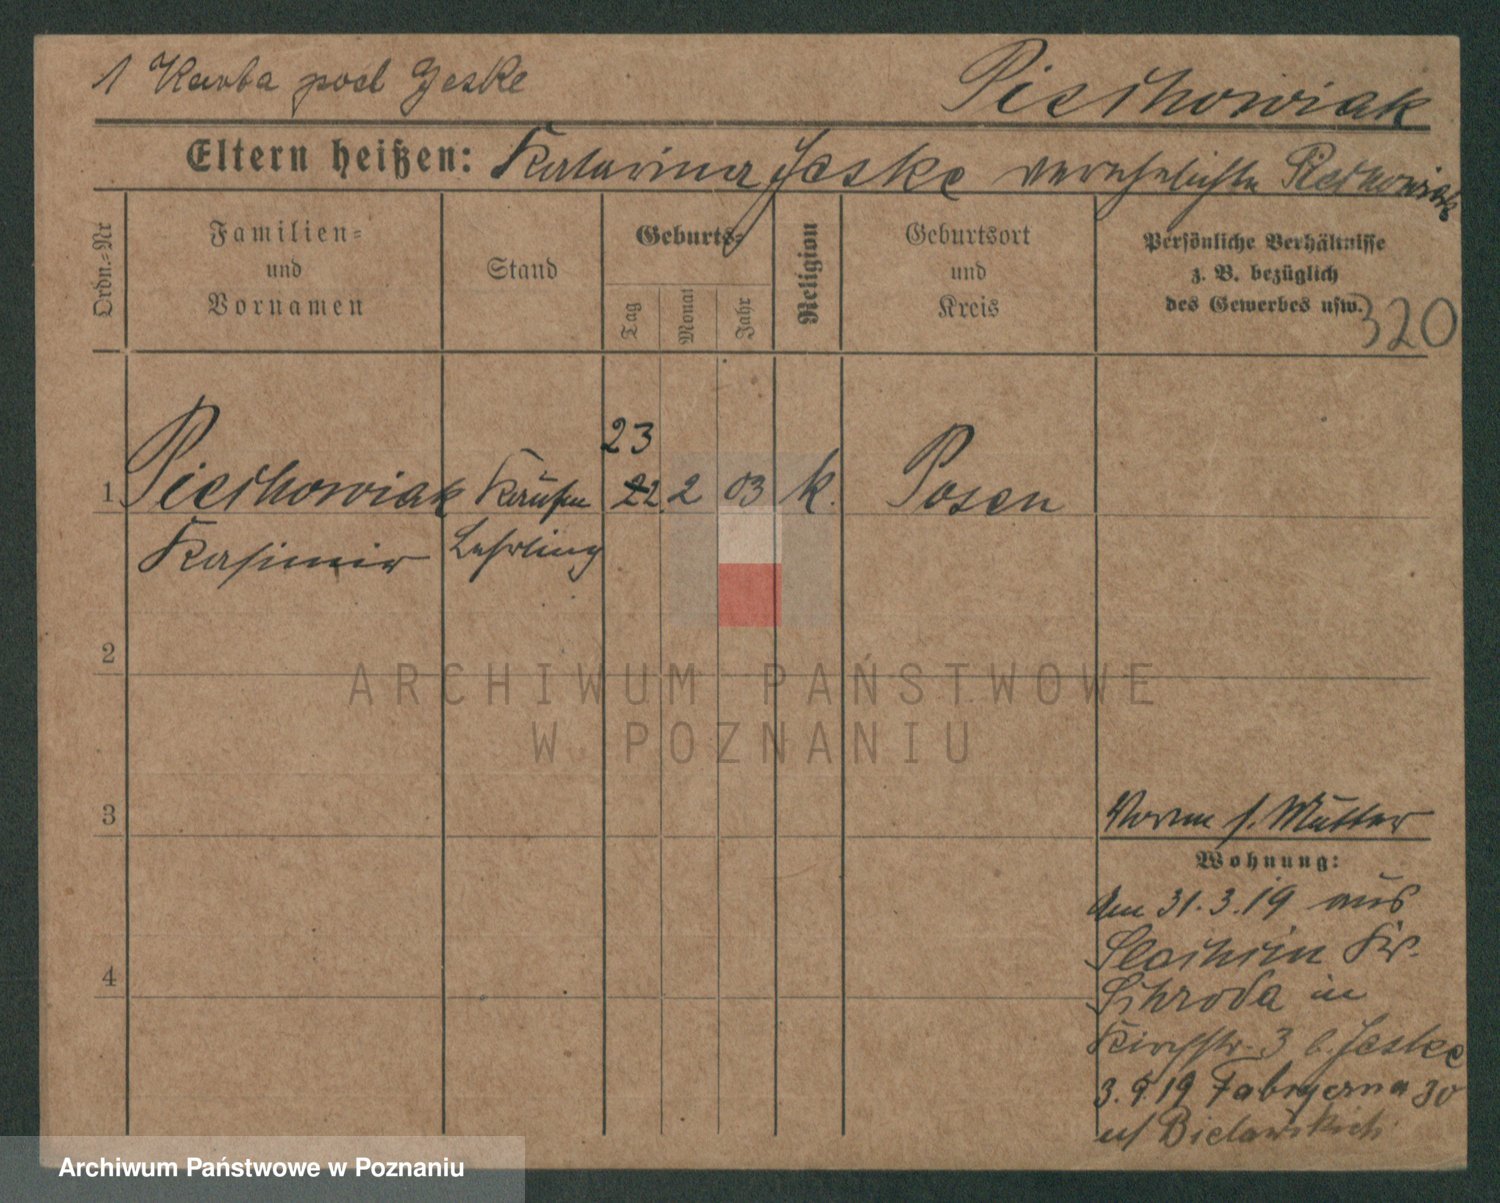 1 Karta pod Jeske
Piechowiak
Eltern heißen: Katarina Jeske verehelichte Piechowiak
Ordn.-Nr
Familien-
und
Vornamen
Stand
Geburts-
Tag
Monat
Jahr
Religion
Geburtsort
und
Kreis
Persönliche Verhältnisse
z. B. bezüglich
des Gewerbes usw.
320
23
1 Piechowiak Kaufm 22 2 03 k. Posen
Kasimir Lehrling
2
3
4
s. Mutter
Wohnung:
am 31.3.19 aus
Kr.
Schroda in
Kirchstr. 3 b. Jeske
3.9.19 Fabryczna 30
b/ Bielawskich
ARCHIWUM PAŃSTWOWE
W POZNANIU
Archiwum Państwowe w Poznaniu